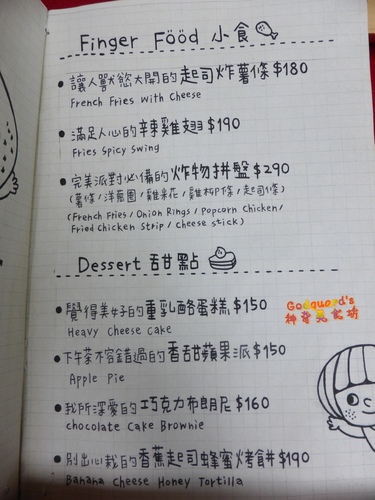 Finger Fööd 小食
讓人獸慾大開的起司炸薯條 $180
French Fries With Cheese
滿足人心的辣雞翅 $190
Fries Spicy Swing
完美派對必備的炸物拼盤 $290
(薯條/洋蔥圈/雞米花/雞柳條/起司條)
(French Fries/Onion Rings/Popcorn Chicken/
Fried Chicken Strip/cheese stick)
Dessert 甜點
覺得美好的重乳酪蛋糕 $150
Heavy Cheese Cake
下午茶不容錯過的香甜蘋果派 $150
Apple Pie
我所深愛的巧克力布朗尼 $160
chocolate Cake Brownie
別出心栽的香蕉起司蜂蜜烤餅 $190
Banana Cheese Honey Tortilla